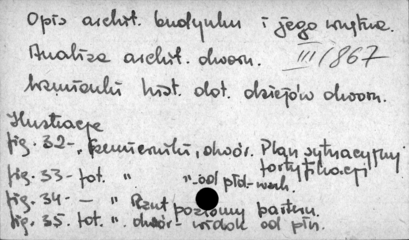 Opis archit. budynku i jego wnętrza.
Analiza archit. dworu. III/867
hist. dot. dziejów dworu.
Ilustracje
fig. 32 -, dwór. Plan sytuacyjny fortyfikacji
fig. 33 - fot. " " - od płd-wsch.
fig. 34 - — " Rzut poziomy parteru.
fig. 35. fot. ". dwór - widok od płn.